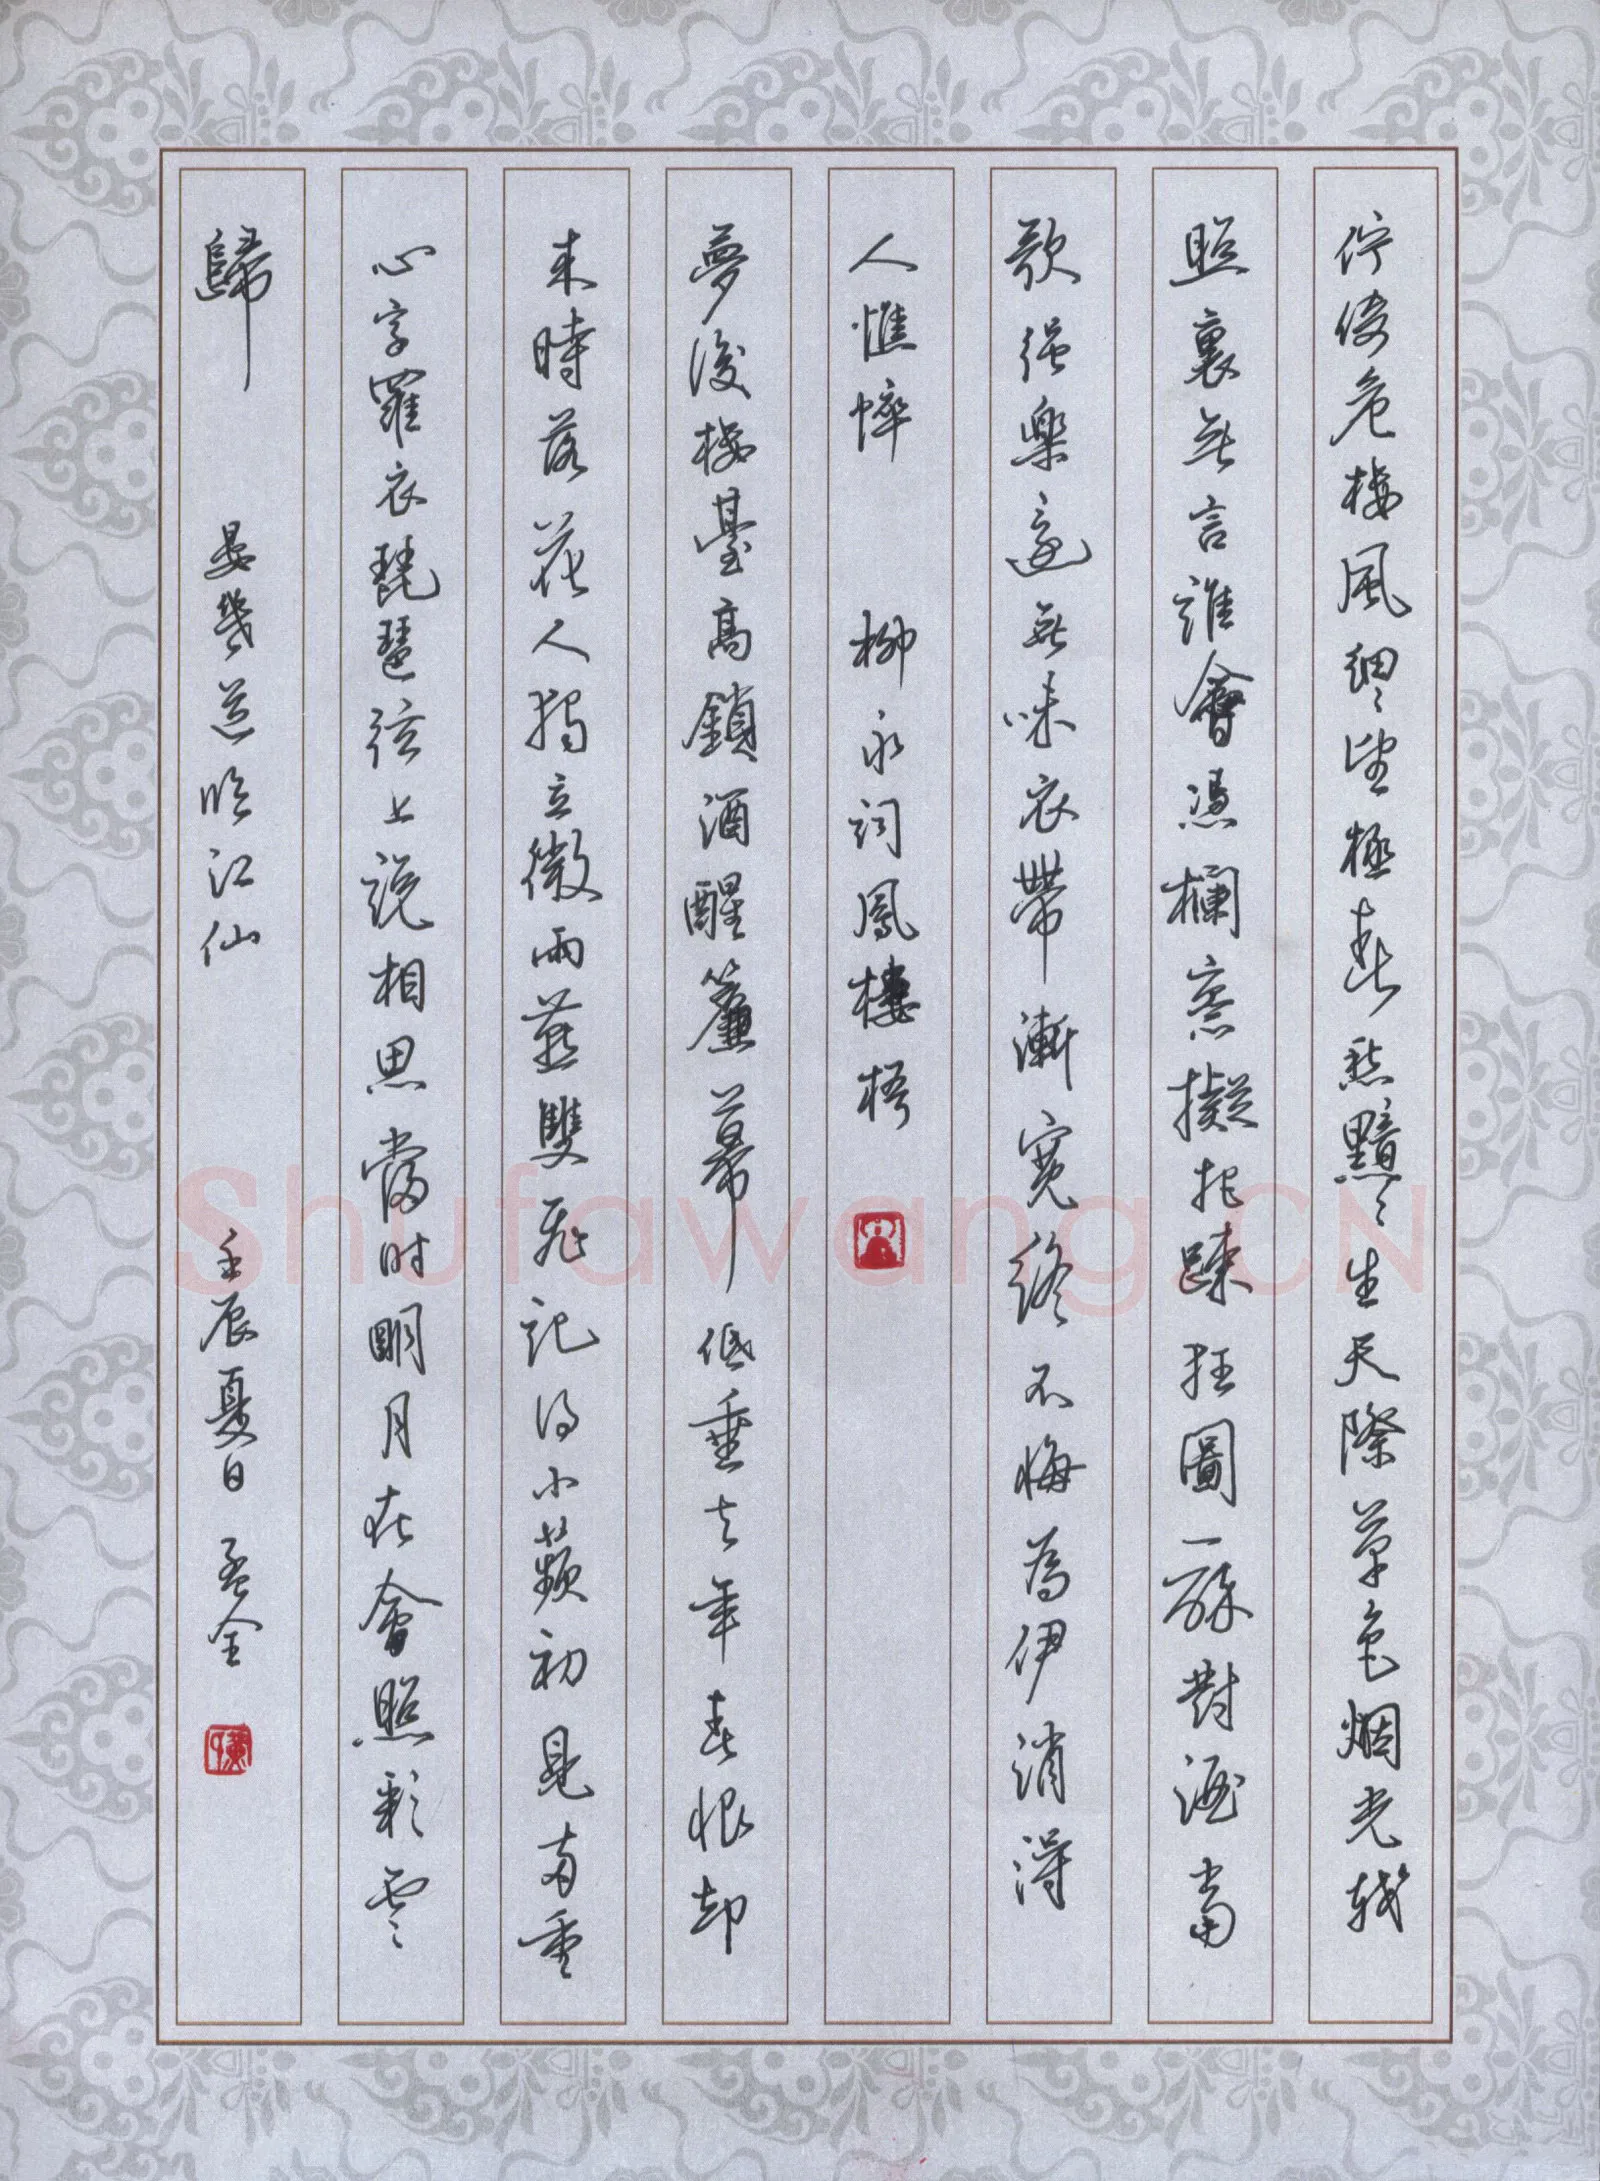 佇倚危樓風細々望極春愁黯々生天際草色烟光殘
照裏無言誰會憑欄意擬把疎狂圖一醉對酒當
歌強樂還無味衣帶漸寬終不悔為伊消得
人憔悴 柳永詞鳳棲梧
夢後樓臺高鎖酒醒簾幕低垂去年春恨却
来時落花人獨立微雨燕雙飛記得小蘋初見兩重
心字羅衣琵琶弦上説相思當时明月在曾照彩雲
歸 晏幾道臨江仙 壬辰夏日 孟全
Shufawang.CN